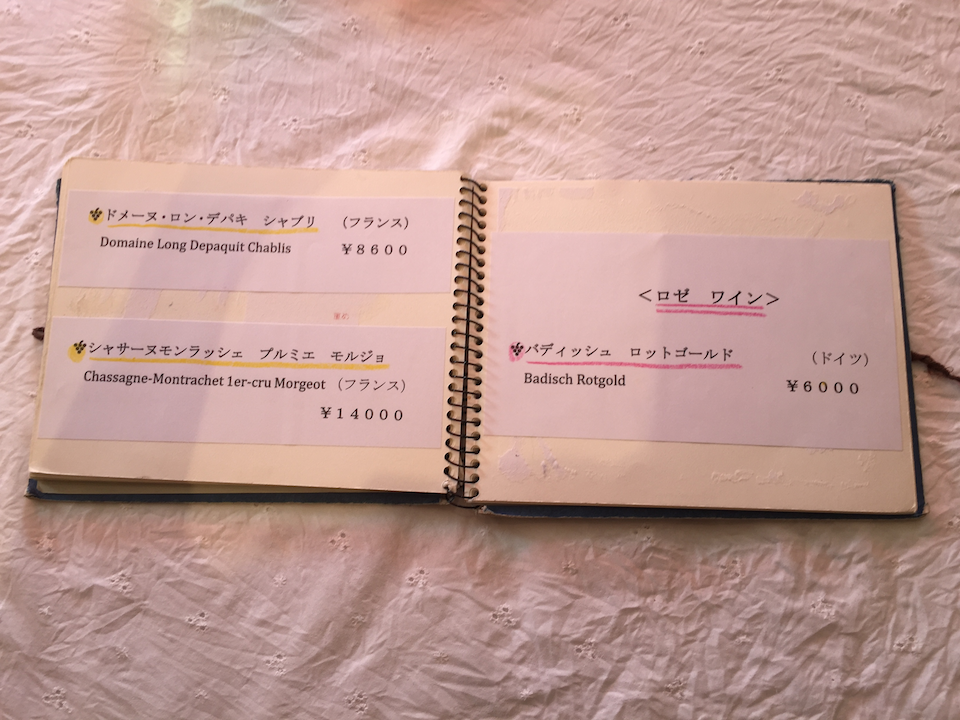 ドメーヌ・ロン・デパキ　シャブリ　（フランス）
Domaine Long Depaquit Chablis　￥８６００
シャサーヌモンラッシェ　プルミエ　モルジョ
Chassagne-Montrachet 1er-cru Morgeot （フランス）
￥１４０００
＜ロゼ　ワイン＞
バディッシュ　ロットゴールド　（ドイツ）
Badisch Rotgold　￥６０００